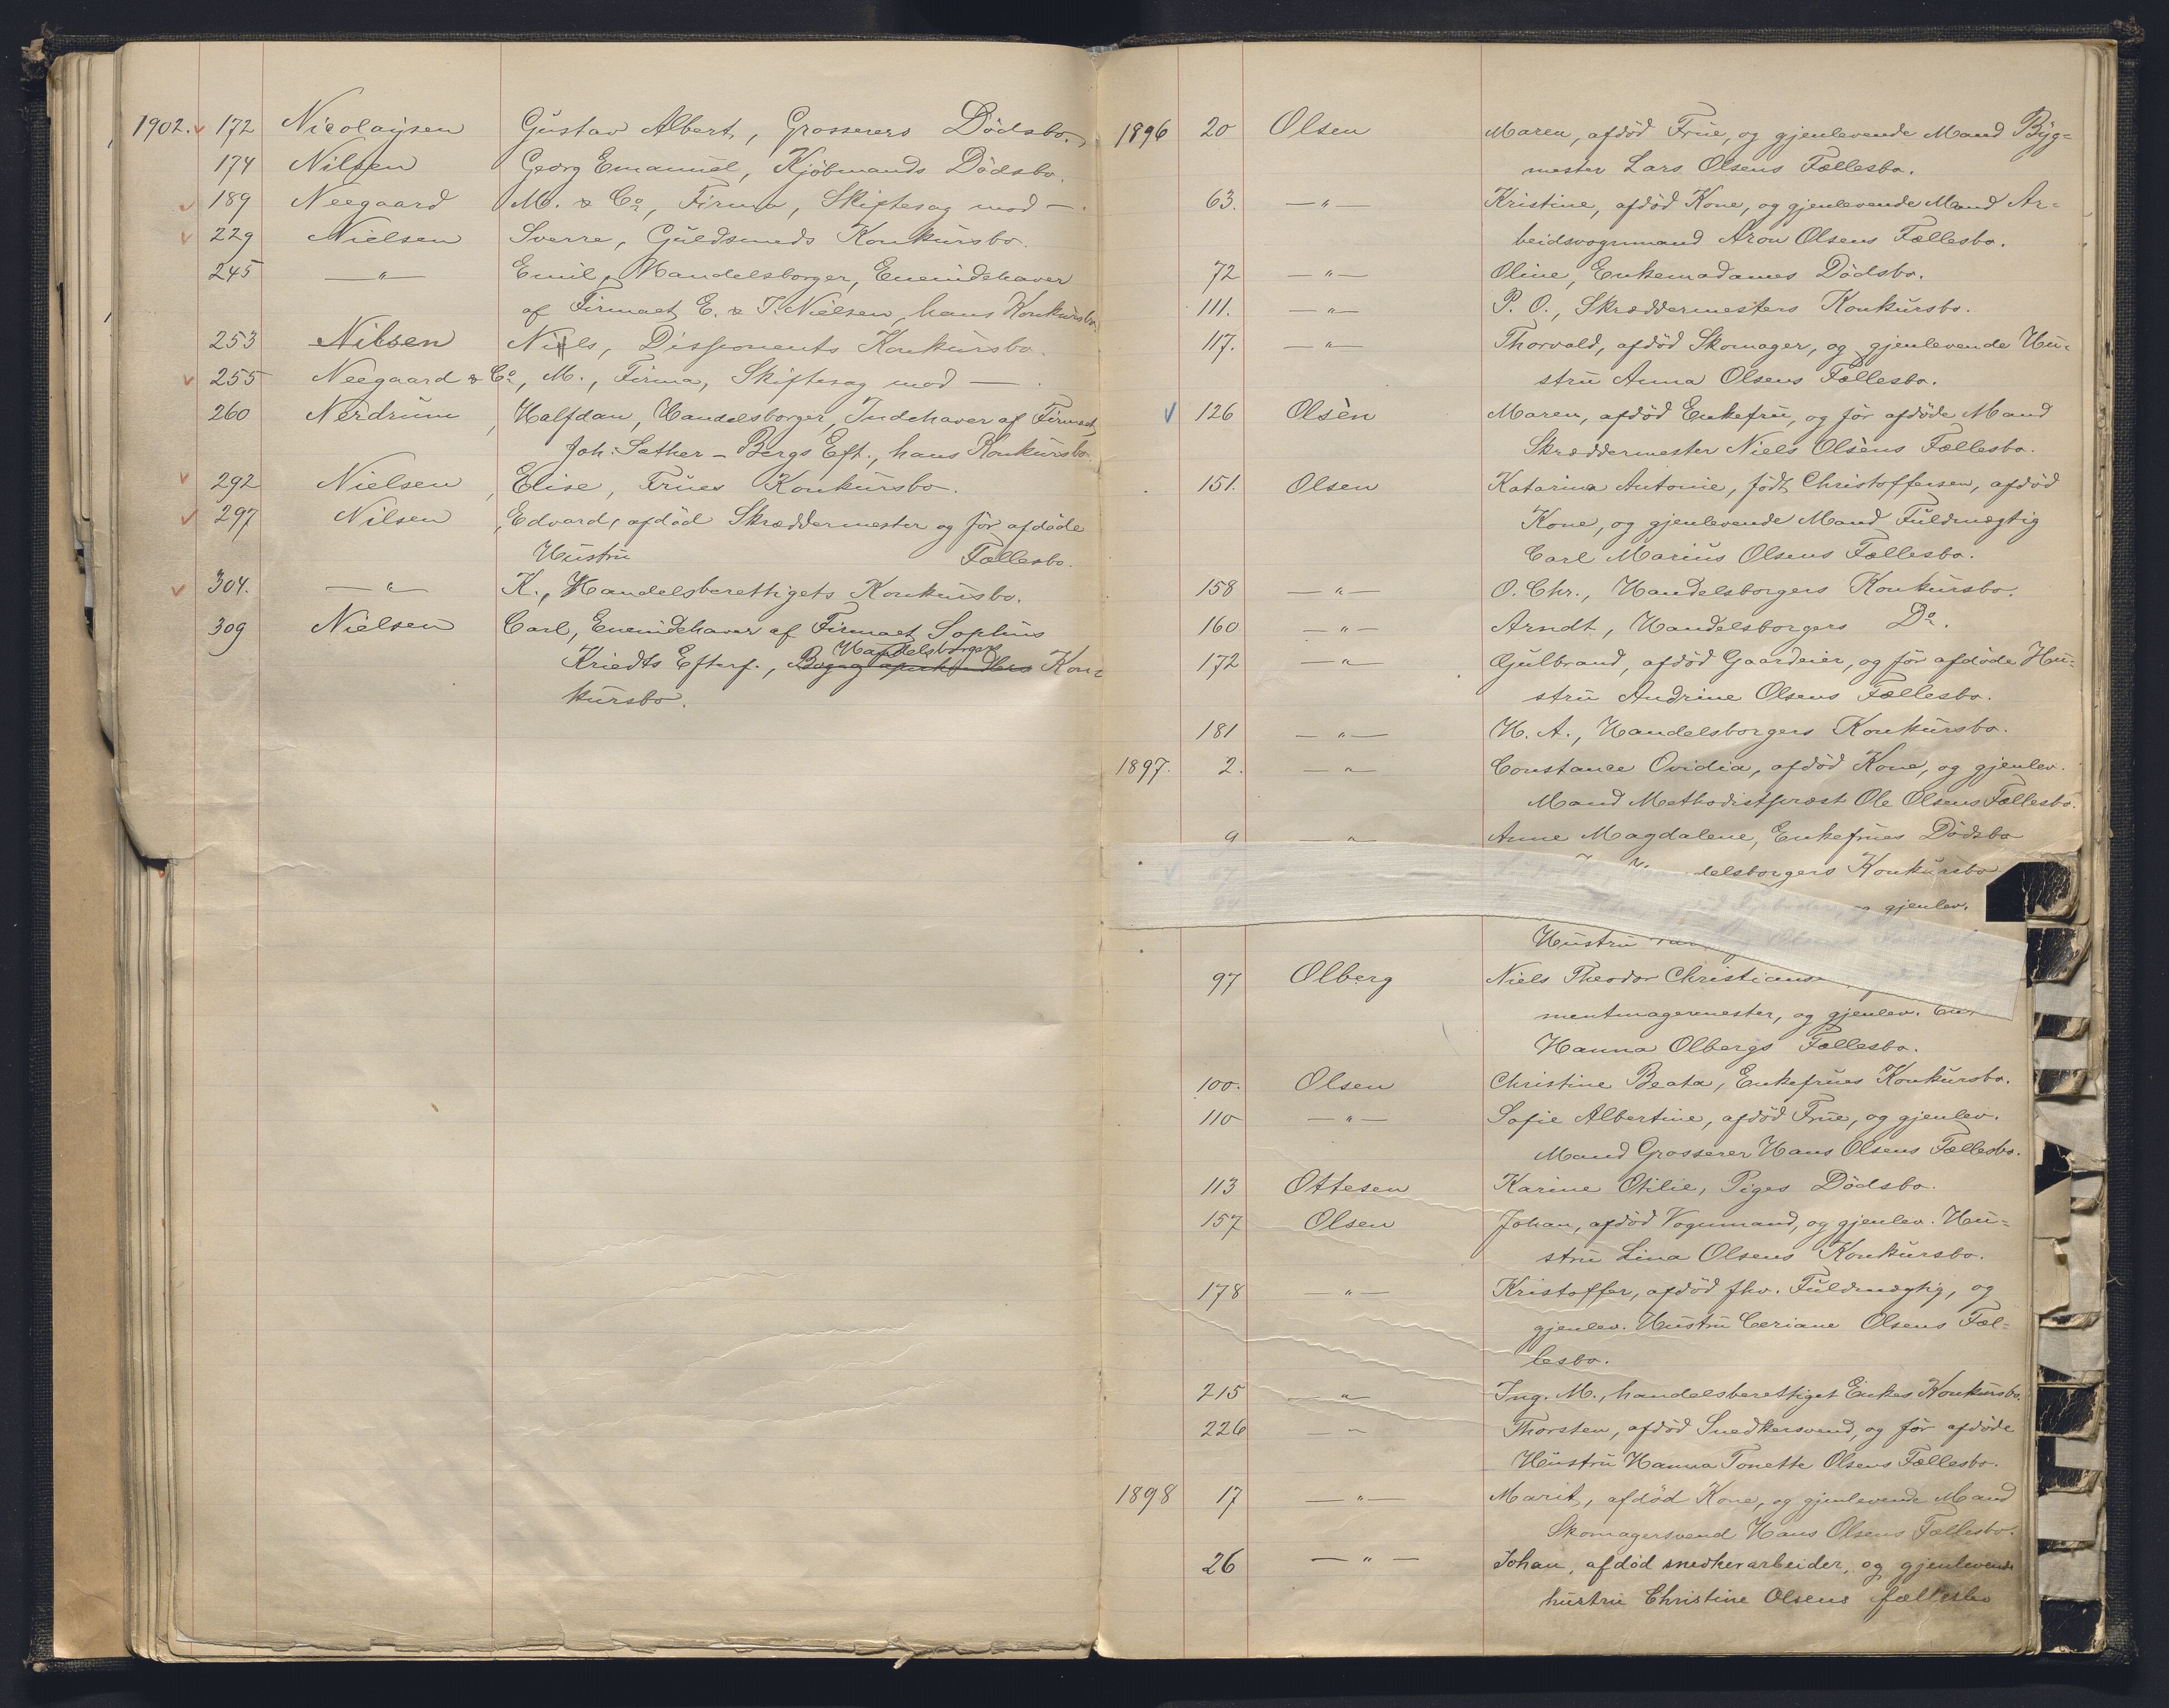 1902. 172 Nicolaysen Gustav Albert, Grosserers Dödsbo.
174 Nilsen Georg Emanuel, Kjöbmands Dödsbo.
189 Neegaard M. & Co, Firma, Skiftesag mod —
229 Nielsen Sverre, Guldsmeds Konkursbo.
245 —"— Emil, Handelsborger, Eneindehaver
af Firmaet E. & T. Nielsen, hans Konkursbo.
253 Nilsen Niels, Disponents Konkursbo.
255 Neegaard & Co, M., Firma, Skiftesag mod —.
260 Nerdrum, Halfdan, Handelsborger, Indehaver af Firmaet
Joh: Sæther-Bergs Eft., hans Konkursbo.
292 Nielsen, Elise, Frues Konkursbo.
297 Nilsen, Edvard, afdöd Skræddermester og för afdöde
Hustru Fællesbo.
304. —"— K., Handelsberettigets Konkursbo.
309 Nielsen Carl, Eneindehaver af Firmaet Sophus
Handelsborgers
Kriedts Efterf., Bog og Kon-
kursbo.
1896 20 Olsen Maren, afdöd Frue, og gjenlevende Mand Byg=
mester Lars Olsens Fællesbo.
63. —"— Kristine, afdöd Kone, og gjenlevende Mand Ar=
beidsvognmand Aron Olsens Fællesbo.
72 —"— Oline, Enkemadames Dödsbo.
111. —"— P. O., Skræddermesters Konkursbo.
117. —"— Thorvald, afdöd Skomager, og gjenlevende Hu=
stru Anna Olsens Fællesbo.
126 Olsèn Maren, afdöd Enkefru, og för afdöde Mand
Skræddermester Niels Olsèns Fællesbo.
151. Olsen Katarina Antonie, födt Christoffersen, afdöd
Kone, og gjenlevende Mand Fuldmægtig
Carl Marius Olsens Fællesbo.
158 —"— O. Chr., Handelsborgers Konkursbo.
160 —"— Arndt, Handelsborgers Do.
172 —"— Gulbrand, afdöd Gaardeier, og för afdöde Hu=
stru Andrine Olsens Fællesbo.
181 —"— H. A., Handelsborgers Konkursbo.
1897. 2. —"— Constance Ovidia, afdöd Kone, og gjenlev.
Mand Methodistpræst Ole Olsens Fællesbo.
9 —"— Anne Magdalene, Enkefrues Dödsbo
Konkursbo
gjenlev.
Hustru
97 Olberg Niels Theodor
mentmagermester, og gjenlev.
Hanna Olbergs Fællesbo.
100. Olsen Christine Beata, Enkefrues Konkursbo.
110 —"— Sofie Albertine, afdöd Frue, og gjenlev.
Mand Grosserer Hans Olsens Fællesbo.
113 Ottesen Karine Otilie, Piges Dödsbo.
157 Olsen Johan, afdöd Vognmand, og gjenlev. Hu=
stru Lina Olsens Konkursbo.
178 —"— Kristoffer, afdöd fhv. Fuldmægtig, og
gjenlev. Hustru Ceriane Olsens Fæl=
lesbo.
215 —"— Ing. M., handelsberettiget Enkes Konkursbo.
226 —"— Thorsten, afdöd Snedkersvend, og för afdöde
Hustru Hanna Tonette Olsens Fællesbo.
1898 17 —"— Marit, afdöd Kone, og gjenlevende Mand
Skomagersvend Hans Olsens Fællesbo.
26 —"— Johan, afdöd snedkerarbeider, og gjenlevende
hustru Christine Olsens fællesbo